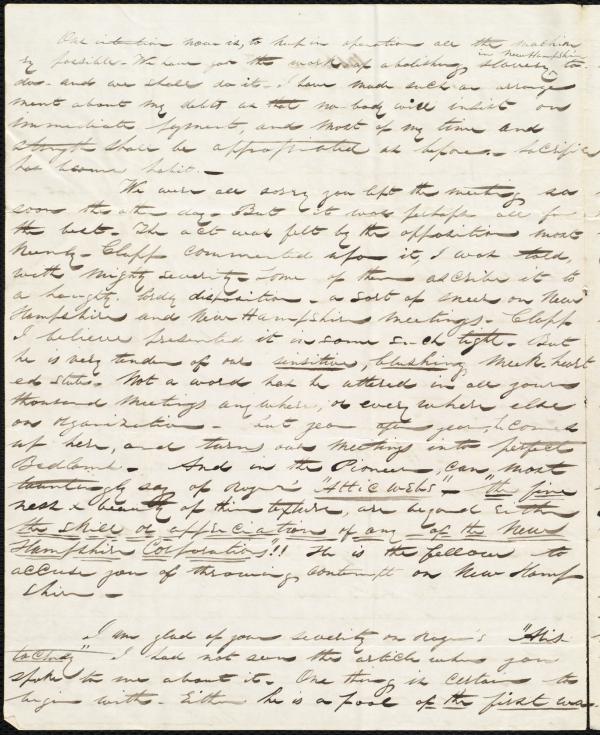 Our intention now is, to keep in operation all the machine
in New Hampshire
ry possible. We have got the work of abolishing slavery to
do - and we shall do it. I have made such an arrange
ment about my debts as that no-body will insist on
immediate payment, and most of my time and
strength shall be appropriated as before. - Sacrifice
has become habit. -
We were all sorry you left the meeting so
soon the other day - But it was perhaps all for
the best. - The act was felt by the opposition most
keenly - Clapp commented upon it, I was told,
with mighty severity - some of them ascribe it to
a haughty, lordly disposition - a sort of sneer on New
Hampshire and New Hampshire meetings - Clapp
I believe presented it in some such light. - But
he is very tender of our sensitive, blushing, meek-heart
ed State - Not a word has he uttered in all your
thousand meetings any where, or every where else
on organization - but year after year, he comes
up here, and turns our meetings into perfect
Bedlams. - And in the Pioneer, can, most
tauntingly say of Rogers "Attic webs" - "the fine
ness & beauty of their texture, are beyond either
the skill or appreciation of any of the New
Hampshire Corporations"!! He is the fellow to
accuse you of throwing contempt on New Hamp
shire -
I am glad of your severity on Rogers's
I had not seen the article when you
spoke to me about it. - One thing is certain to
begin with. - Either he is a fool of the first wa-